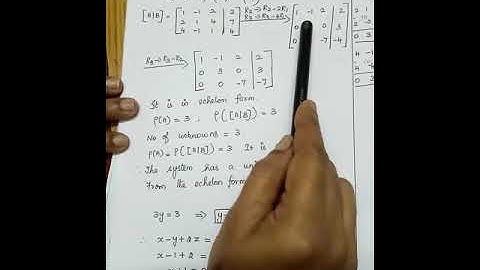 [A|B] = [1 -1 2 | 2
2 1 4 | 7
4 -1 1 | 4] R2→R2-2R1 R3→R3-4R1 [1 -1 2 | 2
0 0 3
0 -7 -4]
R3→R3-R2 [1 -1 2 2
0 3 0 3
0 0 -7 -7]
It is in echelon form.
ρ(A) = 3 , ρ([A|B]) = 3
No of unknowns = 3
ρ(A) = ρ([A|B]) = 3 It is
∴ The system has a uni
From the echelon form
3y = 3 ⇒ y
∴ x-y+2z =
x-1+2 =